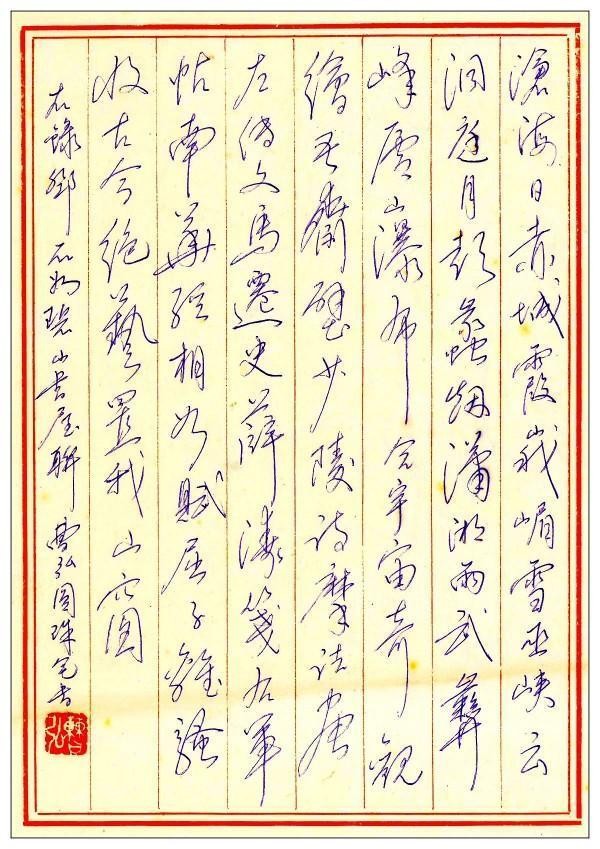 滄海日赤城霞峨嵋雪巫峽云
洞庭月彭蠡烟瀟湘雨武彝
峰廬山瀑布合宇宙奇觀
繪吾齋壁少陵诗摩诘畫
左傳文馬遷史薛濤箋右軍
帖南華經相如賦屈子離騷
收古今絕藝置我山窗
右錄鄧石如碧山書屋聯 曹弘圓珠笔書